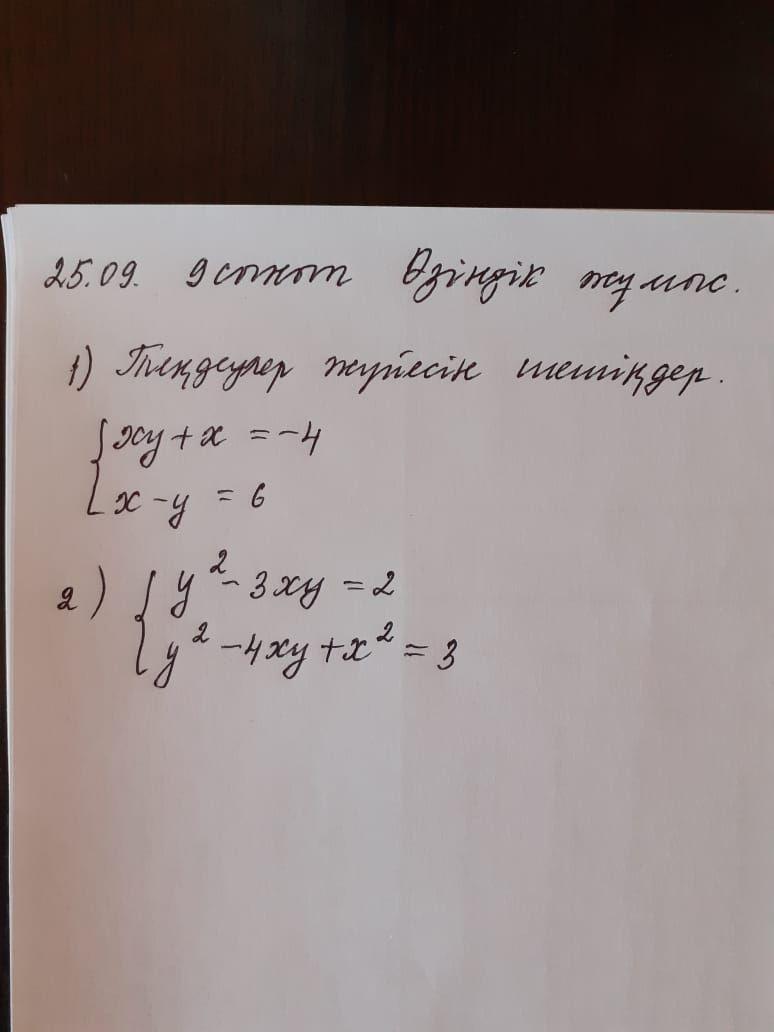 25.09. 9 сынып Өзіндік жұмыс.
1) Теңдеулер жүйесін шешіңдер.
{xy + x = -4
x - y = 6
2) {y² - 3xy = 2
y² - 4xy + x² = 3